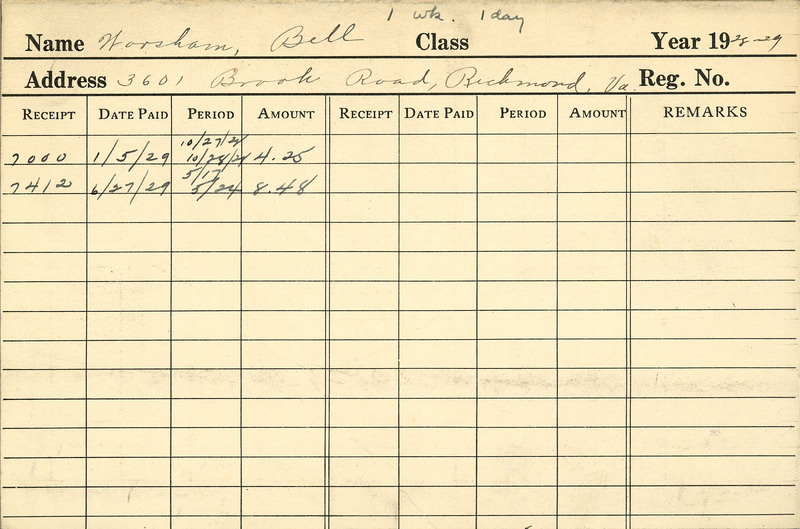 1 wk. 1 day
Name Worsham, Bell Class Year 1928-29
Address 3601 Brook Road, Richmond, Va. Reg. No.
RECEIPT DATE PAID PERIOD AMOUNT RECEIPT DATE PAID PERIOD AMOUNT REMARKS
10/27/28
7000 1/5/29 10/28/28 4.25
5/17
7412 6/27/29 5/24 8.48